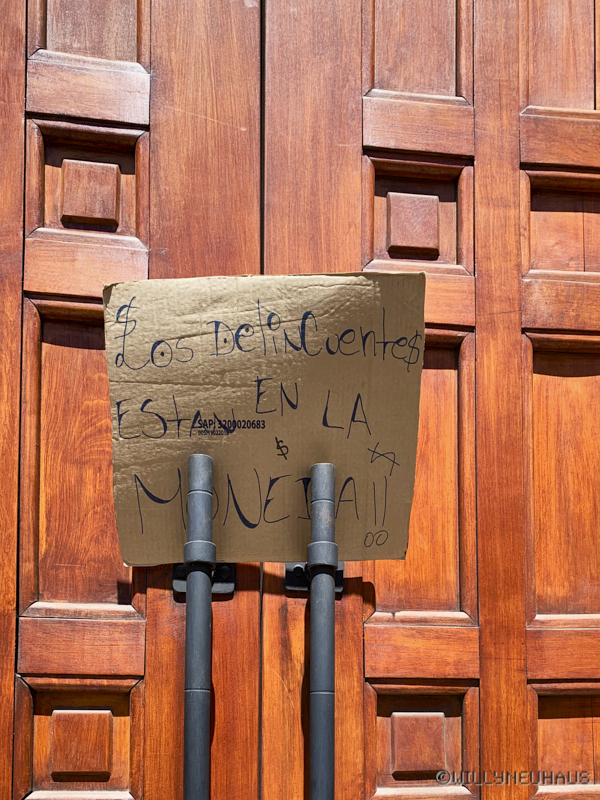 $
Los DelinCuente$
EstAN EN LA
SAP: 3200020683
$
MONEDA!!
©WILLYNEUHAUS